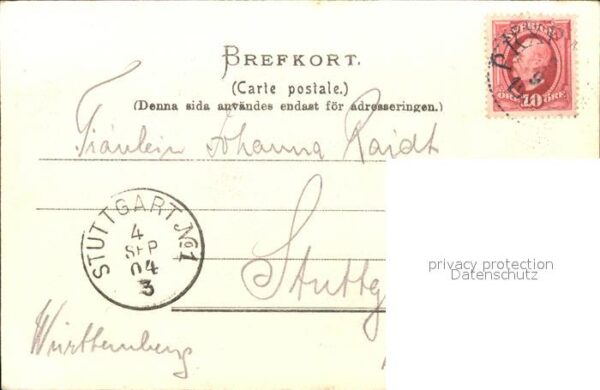 BREFKORT.
(Carte postale.)
(Denna sida användes endast för adresseringen.)
Fräulein Johanna Raidt
STUTTGART. No 1
4
SEP
04
3
Stuttg
Württemberg
SVERIGE
10
ÖRE ÖRE
privacy protection
Datenschutz